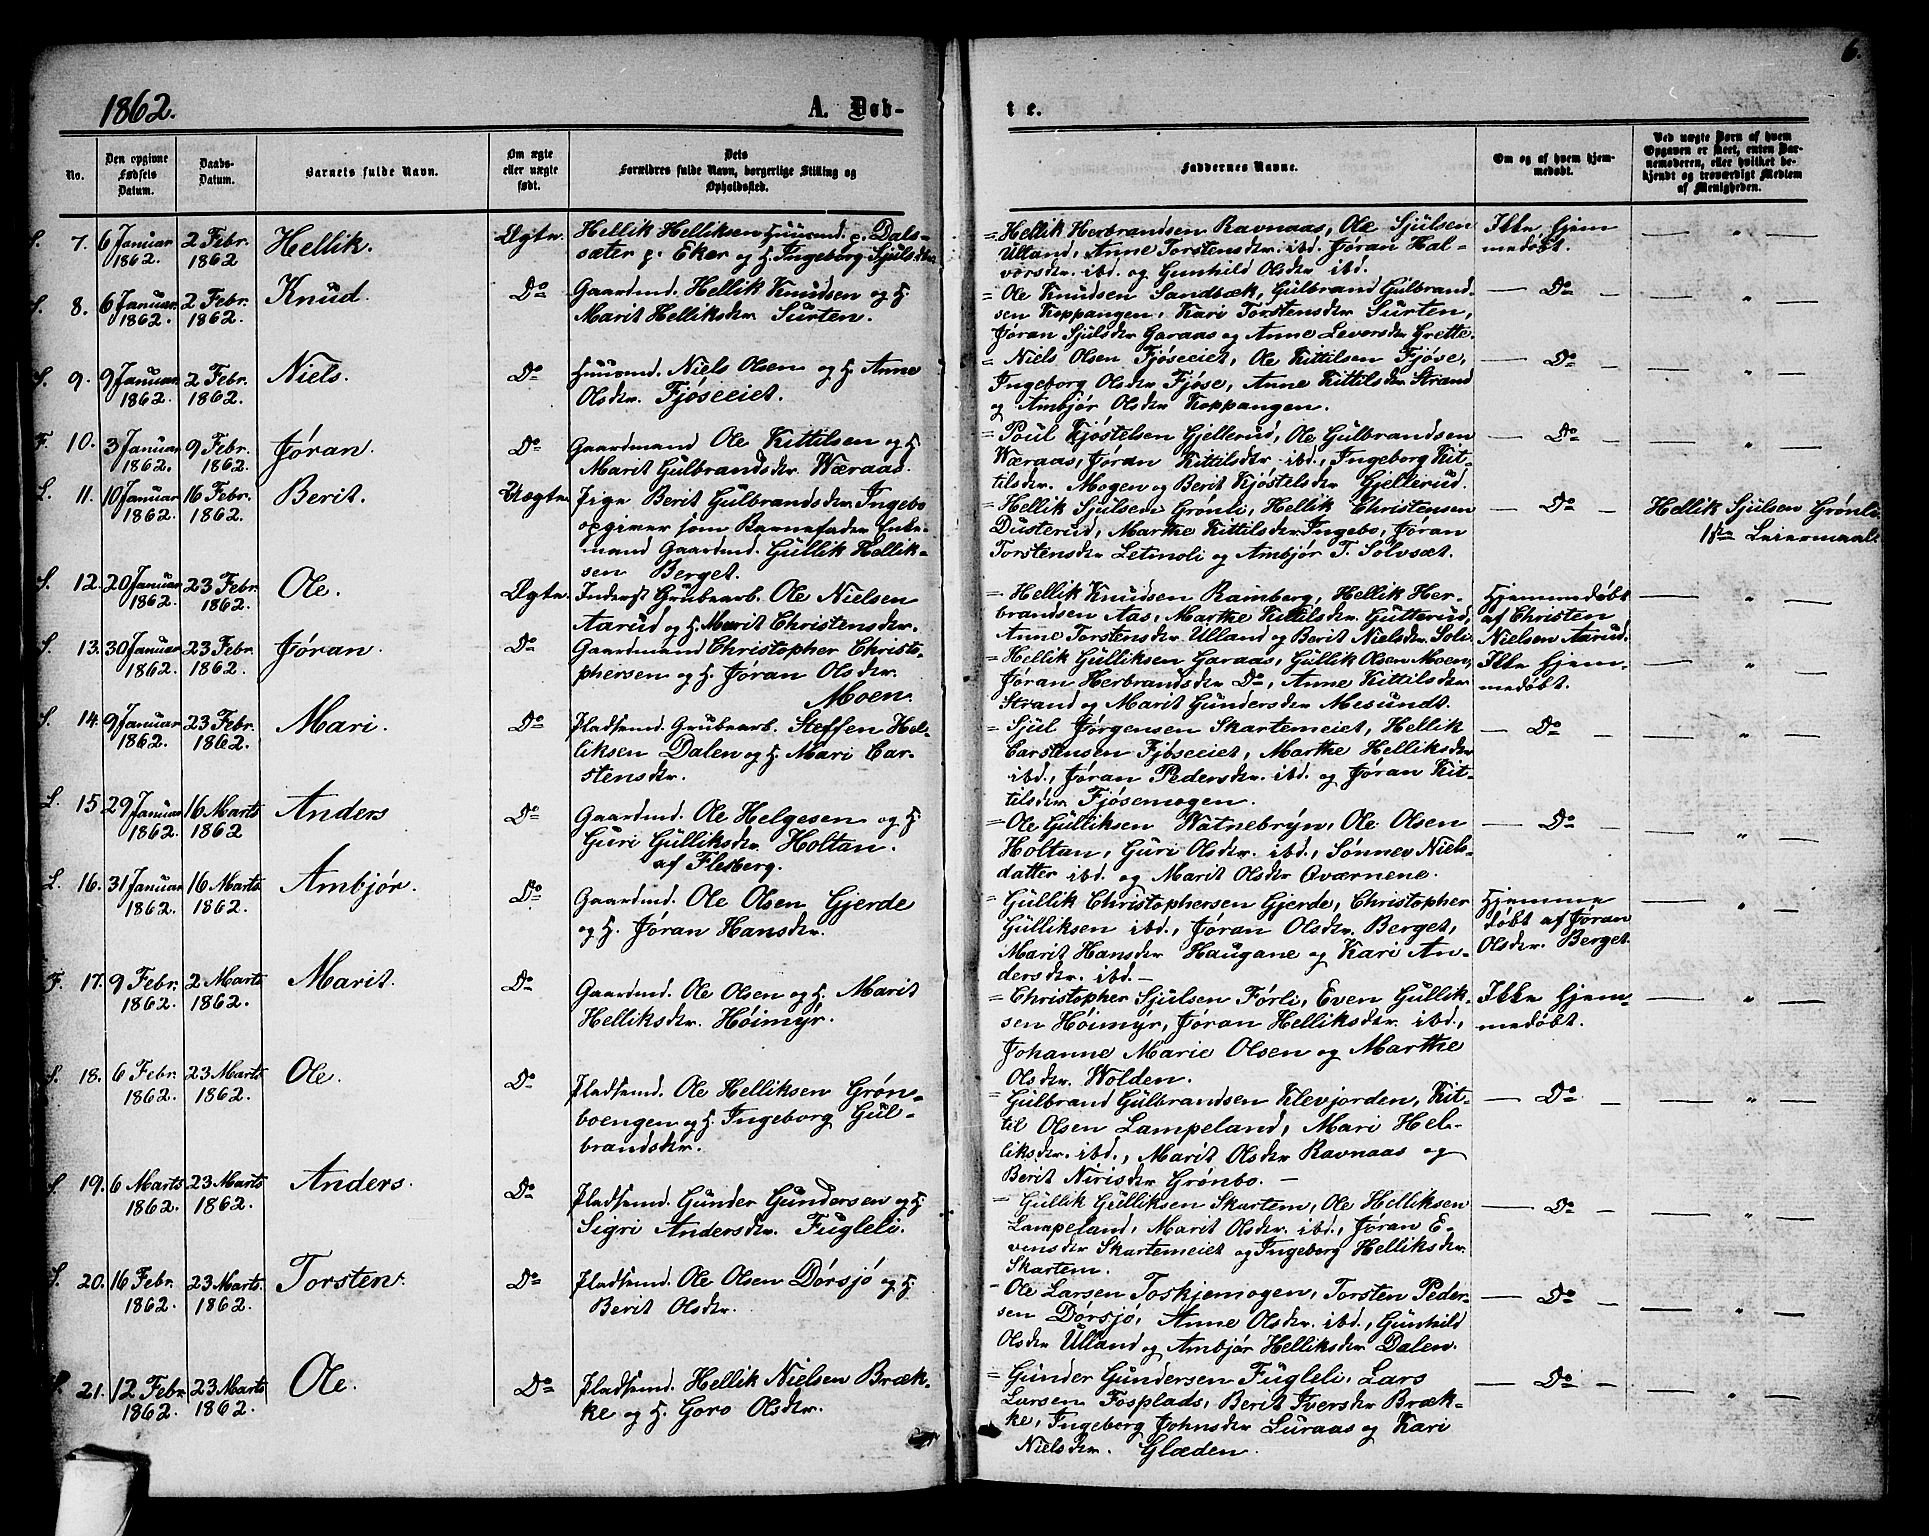 6.
1862.
A. Døb-
te.
No.
Den opgivne Fødsels Datum.
Daabs-Datum.
Barnets fulde Navn.
Om ægte eller uægte født.
Dets Forældres fulde Navn, borgerlige Stilling og Opholdssted.
Faddernes Navne.
Om og af hvem hjemmedøbt.
Ved uægte Børn af hvem Opgaven er skeet, enten Barnemoderen, eller hvilket bekjendt og troværdigt Medlem af Menigheden.
S. 7. 6 Januar 1862. 2 Febr. 1862 Hellik. Ægte.
Hellik Helliksen Huusmd. p. Dals-
sæter p. Eker og H. Ingeborg Sjulsdtr.
= Hellik Herbrandsen Ravnaas, Ole Sjulsen
Ulland, Anne Torstensdtr. ibd. Jøran Hal-
vorsdtr. ibd. og Gunhild Olsdtr ibd.
Ikke Hjem
medøbt.
— " —
S. 8. 6 Januar 1862. 2 Febr. 1862. Knud. Do
Gaardmd. Hellik Knudsen og H.
Marit Helliksdtr Surten.
= Ole Knudsen Sandbæk, Gulbrand Gulbrand-
sen Koppangen, Kari Torstensdtr Surten,
Jøran Sjulsdtr Garaas og Anne Leversdtr Grette.
— Do —
— " —
S. 9. 9 Januar 1862. 2 Febr. 1862. Niels. Do
Huusmd. Niels Olsen og H Anne
Olsdtr. Fjøseeiet.
= Niels Olsen Fjøseeiet, Ole Kittilsen Fjøse,
Ingeborg Olsdtr Fjøse, Anne Kittilsdtr Strand
og Ambjør Olsdtr Koppangen.
— Do —
— " —
F. 10. 3 Januar 1862. 9 Febr. 1862. Jøran. Do
Gaardmand Ole Kittilsen og H
Marit Gulbrandsdtr Wæraas.
= Poul Kjøstelsen Gjellerud, Ole Gulbrandsen
Wæraas, Jøran Kittilsdtr ibd., Ingeborg Kit-
tilsdtr. Mogen og Berit Kjøstelsdtr Gjellerud.
— Do —
— " —
L. 11. 10 Januar 1862. 16 Febr. 1862. Berit. Uægte.
Pige Berit Gulbrandsdtr Ingebo
opgiver som Barnefader Enke-
mand Gaardmd. Gullik Hellik-
sen Berget.
= Hellik Sjulsen Grønli, Hellik Christensen
Dusterud, Marthe Kittilsdtr Ingebo, Jøran
Torstensdtr Letmoli og Ambjør T. Solvsæt.
— Do —
Hellik Sjulsen Grønli
1ste Leiermaal
S. 12. 20 Januar 1862. 23 Febr. 1862. Ole. Ægte.
Inderst Grubearb. Ole Nielsen
Aarud og H. Marit Christensdtr.
= Hellik Knudsen Ramberg, Hellik Her-
brandsen Aas, Marthe Kittilsdtr Gutterud,
Anne Torstensdtr Ulland og Berit Nielsdtr Soli.
Hjemmedøbt
af Christen
Nielsen Aarud.
— " —
S. 13. 30 Januar 1862. 23 Febr. 1862. Jøran. Do
Gaardmand Christopher Christo-
phersen og H. Jøran Olsdtr.
Moen.
= Hellik Gulliksen Garaas, Gullik Olsen Moen,
Jøran Herbrandsdtr Do, Anne Kittilsdtr
Strand og Marit Gundersdtr Mesundt.
Ikke Hjem-
medøbt.
— " —
S. 14. 9 Januar 1862. 23 Febr. 1862. Mari. Do
Pladsemd Grubearb. Steffen Hel-
liksen Dalen og H. Mari Car-
stensdtr.
= Sjul Jørgensen Skartemeiet, Hellik
Carstensen Fjøseeiet, Marthe Helliksdtr
ibd., Jøran Pedersdtr. ibd. og Jøran Kit-
tilsdtr Fjøsemogen.
— Do —
— " —
L. 15. 29 Januar 1862. 16 Marts 1862 Anders Do
Gaardmd. Ole Helgesen og H
Guri Gulliksdtr Holtan.
af Flesberg.
= Ole Gulliksen Watnebryn, Ole Olsen
Holtan, Guri Olsdtr. ibd., Sønnev Niels-
datter ibd. og Marit Olsdtr Qværnene.
— Do —
— " —
L. 16. 31 Januar 1862. 16 Marts 1862. Ambjør. Do
Gaardmd. Ole Olsen Gjerde
og H. Jøran Hansdtr.
= Gullik Christophersen Gjerde, Christopher
Gulliksen ibd., Jøran Olsdtr Berget,
Marit Hansdtr Haugane og Kari An-
dersdtr. ibd. —
Hjemme
døbt af Jøran
Olsdtr. Berget.
— " —
F. 17. 9 Febr. 1862. 2 Marts 1862. Marit. Do
Gaardmd. Ole Olsen og H. Marit
Helliksdtr. Høimyr.
= Christopher Sjulsen Førli, Even Gullik-
sen Høimyr, Jøran Helliksdtr. ibd.,
Johanne Marie Olsen og Marthe
Olsdtr. Wolden.
Ikke Hjem-
medøbt.
— " —
S. 18. 6 Febr. 1862. 23 Marts 1862. Ole. Do
Pladsemd. Ole Helliksen Grøn-
boengen og H. Ingeborg Gul-
brandsdtr.
= Gulbrand Gulbrandsen Klevjorden, Kit-
til Olsen Lampeland, Mari Hel-
liksdtr. ibd., Marit Olsdtr Ravnaas og
Berit Nirisdtr Grønbo. —
— Do —
— " —
S. 19. 6 Marts 1862. 23 Marts 1862. Anders. Do
Pladsemd. Gunder Gundersen og H
Sigri Andersdtr. Fugleli.
= Gullik Gulliksen Skartem, Ole Helliksen
Lampeland, Marit Olsdtr. ibd., Jøran E-
vensdtr Skartemeiet og Ingeborg Helliksdtr.
Skartem.
— Do —
— " —
S. 20. 16 Febr. 1862. 23 Marts. 1862. Torsten. Do
Pladsemd. Ole Olsen Dørsjø og H.
Berit Olsdtr.
= Ole Larsen Toskjemogen, Torsten Peder-
sen Dørsjø, Anne Olsdtr. ibd., Gunhild
Olsdtr Ulland og Ambjør Helliksdtr Dalen.
— Do —
— " —
S. 21. 12 Febr 1862. 23 Marts 1862. Ole. Do
Pladsemd. Hellik Nielsen Bræk-
ke og H. Goro Olsdtr.
= Gunder Gundersen Fugleli, Lars
Larsen Fosplads, Berit Iversdtr Bræk-
ke, Ingeborg Johnsdtr Luraas og Kari
Nielsdtr. Glæden.
— Do —
— " —